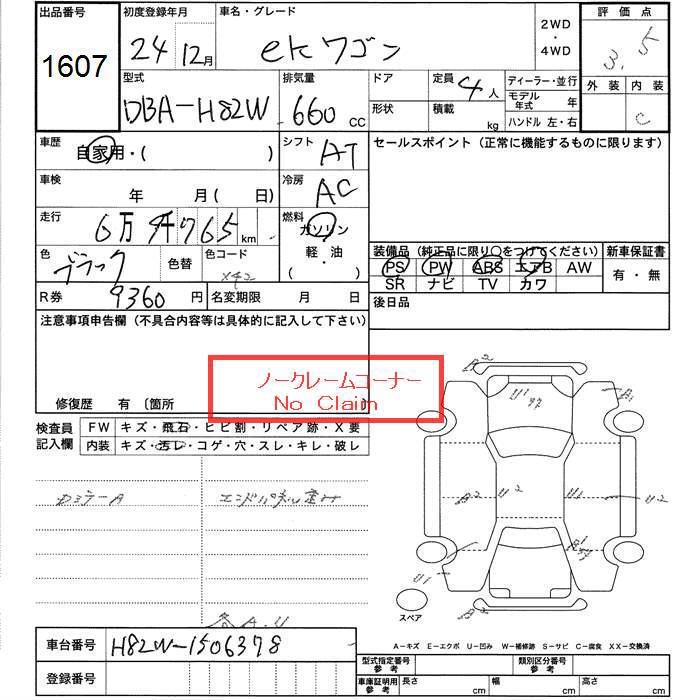 出品番号 初度登録年月 車名・グレード 2WD・4WD 評価点
1607 24年12月 ekワゴン 3.5
型式 排気量 ドア 定員 4人 ディーラー・並行 外装 内装
DBA-H82W 660CC 形状 積載 kg モデル年式 年 C
ハンドル 左・右
車歴 自家用・( ) シフト AT セールスポイント(正常に機能するものに限ります)
車検 年 月( 日) 冷房 AC
走行 6万 千765km 燃料 ガソリン
軽・油
( )
色 ブラック 色替 色コード X42
装備品(純正品に限り○をつけてください) 新車保証書
PS PW ABS エアB AW 有・無
SR ナビ TV カワ
R券 9360円 名変期限 月 日 後日品
注意事項申告欄(不具合内容等は具体的に記入して下さい)
ノークレームコーナー
No Claim
修復歴 有〔箇所
検査員記入欄 FW キズ・飛石・ヒビ割・リペア跡・X要
内装 キズ・汚レ・コゲ・穴・スレ・キレ・破レ
Dミラー A エンドパネル歪み
各A.U
A2 U1 A1
A2 U2 A U2
U1 A2
スペア
A-キズ E-エクボ U-凹み W-補修跡 S-サビ C-腐食 XX-交換済
車台番号 H82W-1506378
登録番号
型式指定番号 参考 類別区分番号 参考
車庫証明用 参考 長さ cm 幅 cm 高さ cm